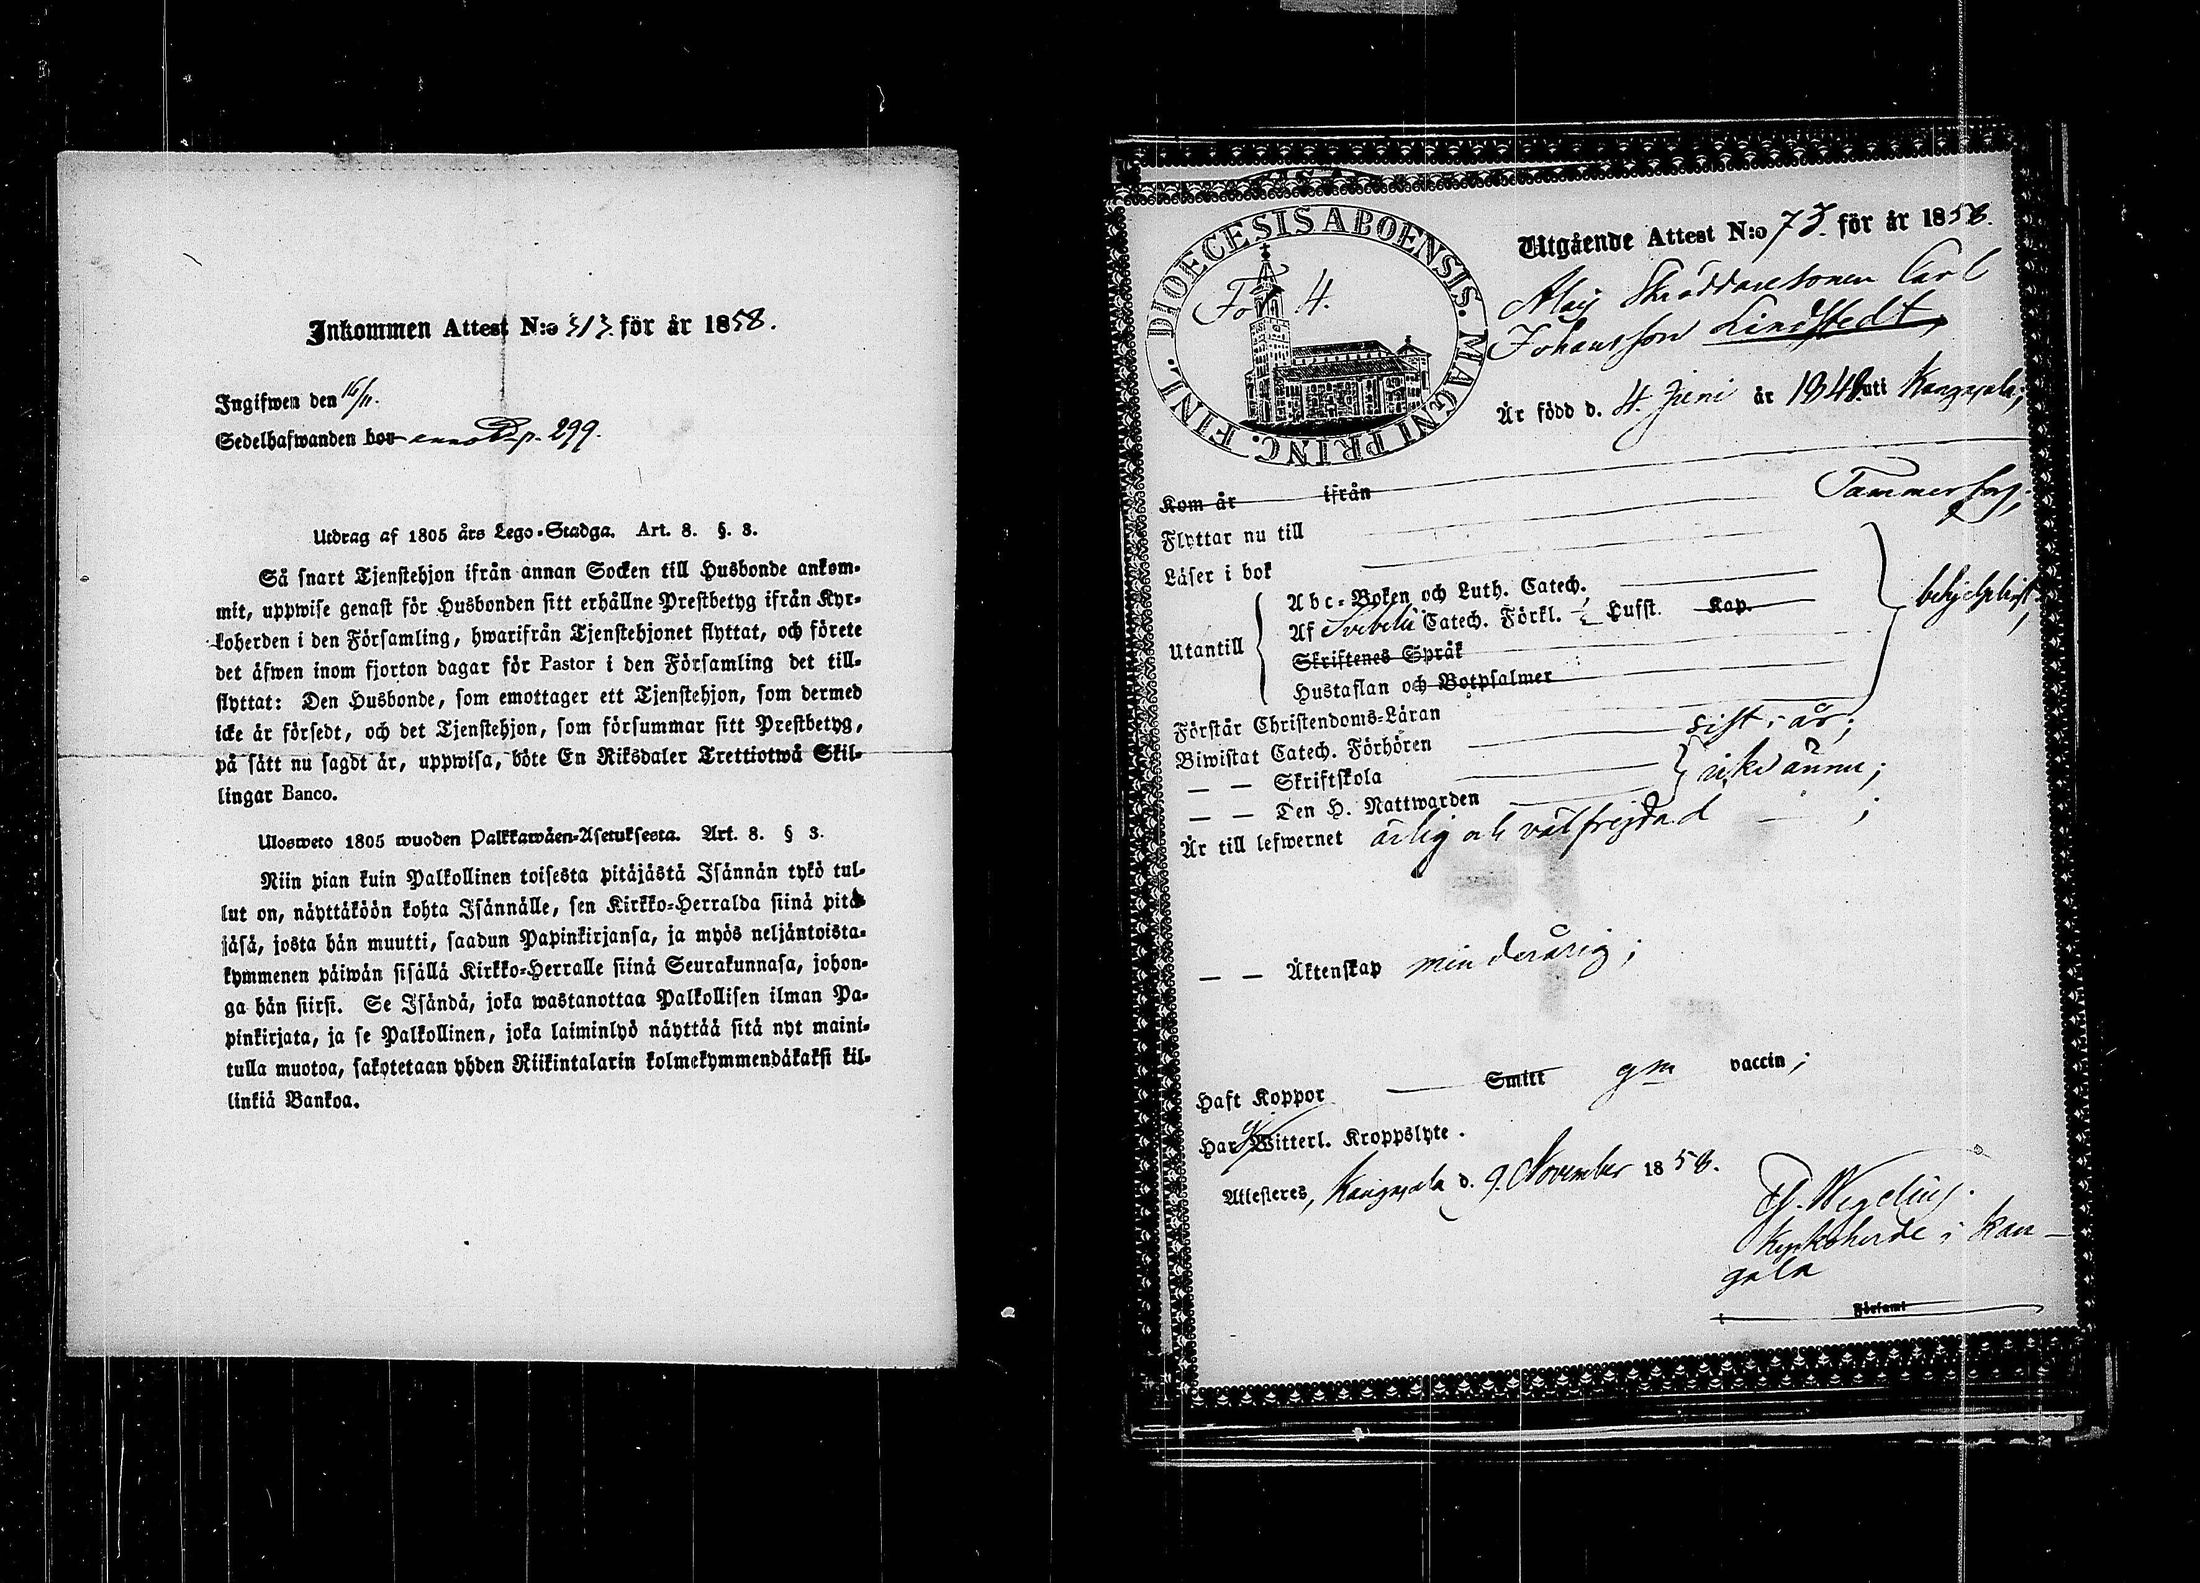 Inkommen Attest N:o 313 för år 1858.
Ingifwen den 16/11.
Sedelhafwanden bor p. 299.
Utdrag af 1805 års Lego-Stadga. Art. 8. §. 3.
Så snart Tjenstehjon ifrån annan Socken till Husbonde ankom-
mit, uppwise genast för Husbonden sitt erhållne Prestbetyg ifrån Kyr-
koherden i den Församling, hwarifrån Tjenstehjonet flyttat, och förete
det äfwen inom fjorton dagar för Pastor i den Församling det till-
flyttat: Den Husbonde, som emottager ett Tjenstehjon, som dermed
icke är försedt, och det Tjenstehjon, som försummar sitt Prestbetyg,
på sätt nu sagdt är, uppwisa, böte En Riksdaler Trettiotwå Skil-
lingar Banco.
Ulosweto 1805 wuoden Palkkawäen-Asetuksesta. Art. 8. § 3.
Niin pian kuin Palkollinen toisesta pitäjästä Isännän tykö tul-
lut on, näyttäköön kohta Isännälle, sen Kirkko-Herralda siinä pitä-
jäsä, josta hän muutti, saadun Papinkirjansa, ja myös neljäntoista-
kymmenen päiwän sisällä Kirkko-Herralle siinä Seurakunnasa, johon-
ga hän siirsi. Se Isändä, joka wastanottaa Palkollisen ilman Pa-
pinkirjata, ja se Palkollinen, joka laiminlyö näyttää sitä nyt maini-
tulla muotoa, sakotetaan yhden Riikintalarin kolmekymmendäkaksi kil-
linkiä Bankoa.
DIOECESIS ABOENSIS. MAGNI PRINC. FINL.
Fol 4.
Utgående Attest N:o 75. för år 1858.
Skräddaresonen Carl
Johansson Lindstedt,
Är född d. 4 Juni år 1848 uti Kangasala;
Kom år ifrån
Flyttar nu till Tammerfors;
Läser i bok
Utantill
Abc-Boken och Luth. Catech.
Af Svebelii Catech. Förkl. Husst. Kap.
Skriftenes Språk
Hustaflan och Botpsalmer
behjelpligt;
Förstår Christendoms-Läran
Biwistat Catech. Förhören sist i år;
— — Skriftskola
— — Den H. Nattwarden
icke ännu;
Är till lefwernet ärlig och välfrejdad — ;
— — Äktenskap minderårig;
Haft Koppor — Smitt gm vaccin;
Har Witterl. Kroppslyte.
Attesteres, Kangasala d. 9. November 1858.
Th. Wegelius.
Kyrkoherde i Kan-
gasala
Församl